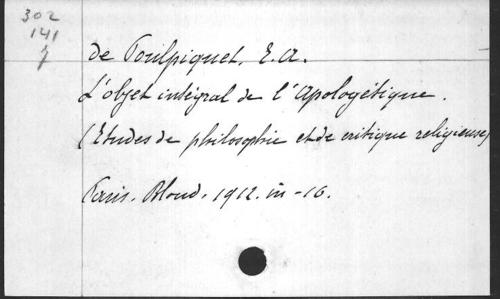 302
141
7
de Poulpiquet, E.A.
L'objet intégral de l'Apologétique.
(Etudes de philosophie et de critique religieuse)
Paris. Bloud. 1912. in-16.